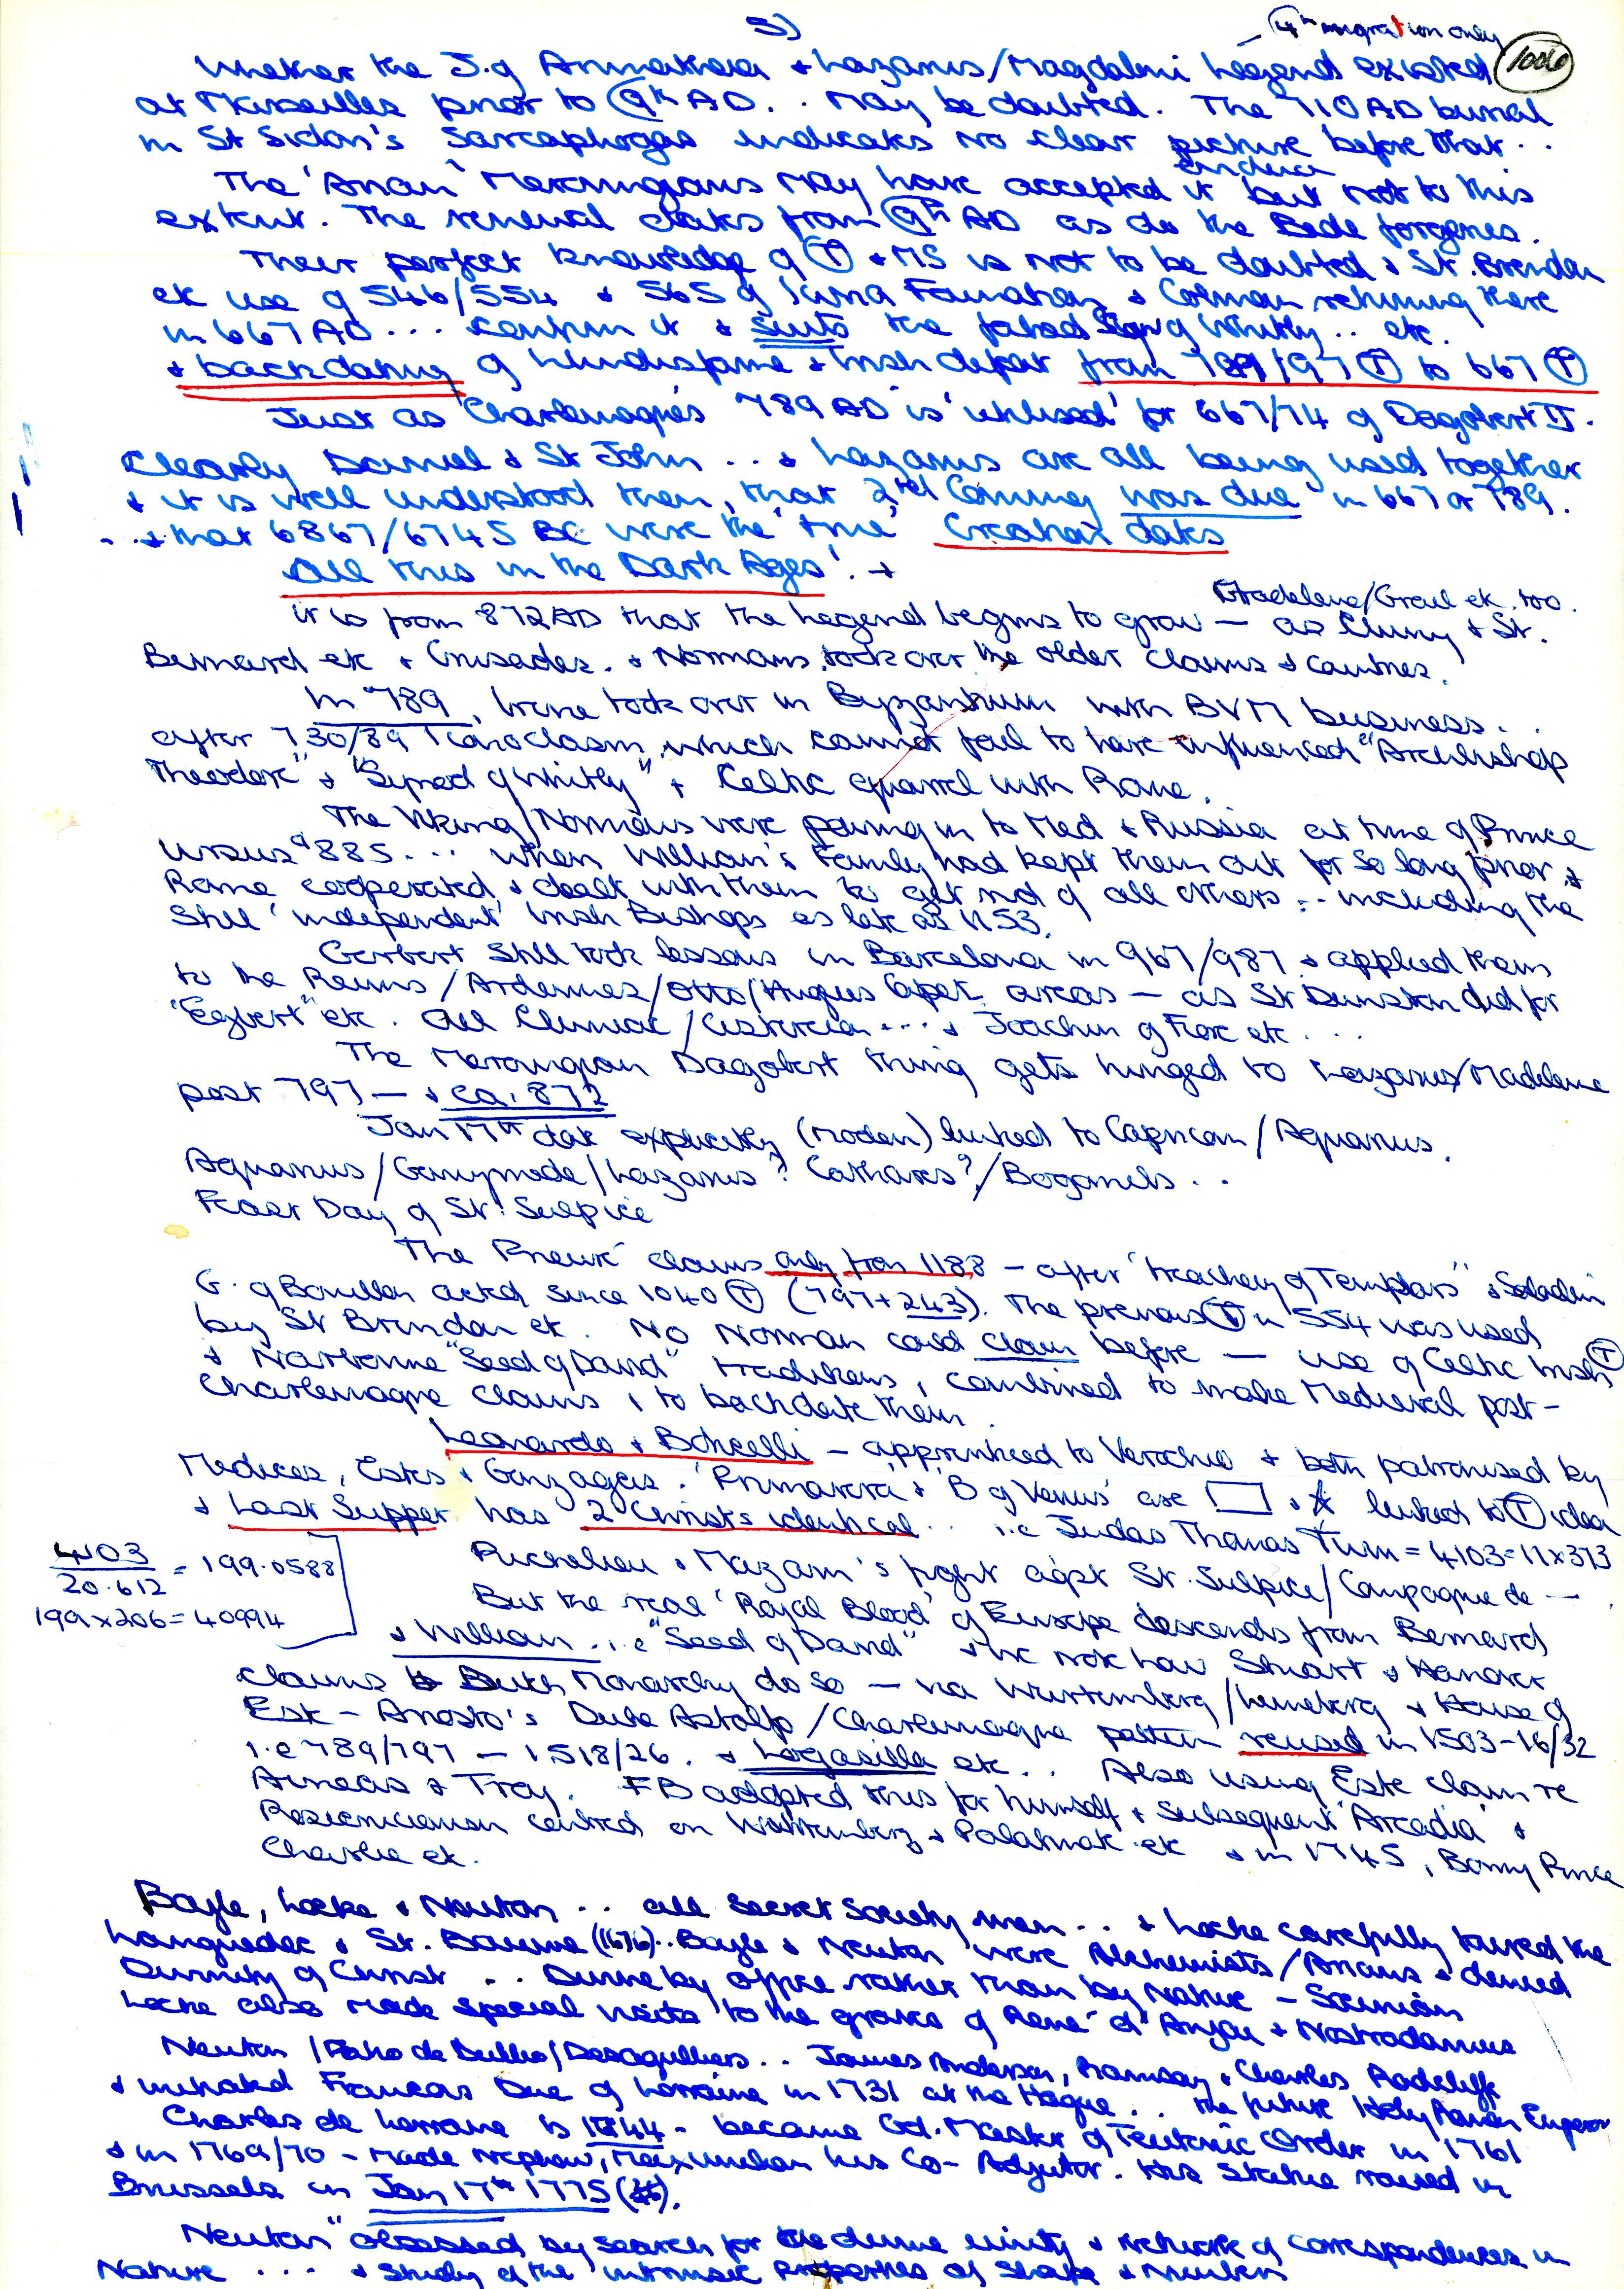 5)
4th migration only
1006
Whether the J. of Arimathea + Lazarus/Magdalene Legend existed
at Marseilles prior to 9th AD.. May be doubted. The 710 AD burial
in St Sidon's Sarcophogas indicates no clear picture before that..
evidence
The 'Arian' Merovingians May have accepted it but not to this
extent. The renewal dates from 9th AD as do the Bede forgeries.
Their perfect knowledge of T + MS is not to be doubted + St. Brendan
etc use of 546/554 + 565 of Iona Foundation + Colman returning there
in 667 AD ... confirm it + suits the faked Syn of Whitby .. etc.
+ backdating of Lindisfarne + Irish defeat from 789/97 T to 667 T
Just as Charlemagne's 789 AD is 'utilised' for 667/74 of Dagobert II.
Clearly Daniel + St John ... + Lazarus are all being used together
+ it is well understood then, that 2nd Coming was due in 667 or 789.
.. + that 6867/6745 BC were the 'true' Creation dates
All this in the Dark Ages'. +
Madelene/Grail etc. too.
it is from 872 AD that the Legend begins to grow — as Cluny + St.
Bernard etc + Crusades. + Normans took over the older claims + countries.
In 789, Irene took over in Byzantium with BVM business..
after 730/89 Iconoclasm which cannot fail to have influenced "Archbishop
Theodore" + "Synod of Whitby" + Celtic quarrel with Rome.
The Viking/Normans were pouring in to Med + Russia at time of Prince
Ursus 885 ... when William's Family had kept them out for so long prior +
Rome cooperated + dealt with them to get rid of all others .. including the
Still 'independent' Irish Bishops as late as 1153.
Gerbert Still took lessons in Barcelona in 967/987 + applied them
to the Reims/Ardennes/Otto/Hugues Capet areas — as St Dunstan did for
"Egbert" etc. All Cluniac/Cistercian ... + Joachim of Fiore etc ...
The Merovingian Dagobert thing gets hinged to Lazarus/Madelene
post 797 — + ca. 872
Jan 17th date explicitly (Modern) linked to Capricorn/Aquarius.
Aquarius/Ganymede/Lazarus? Cathares?/Bogomels ..
Feast Day of St. Sulpice
The Prieuré claims only from 1188 — after 'treachery of Templars' + Saladin
G. of Bouillon acted since 1040 T (797+243). The previous T in 554 was used
by St Brendan etc. No Norman could claim before — use of Celtic Irish T
+ Narbonne "Seed of David" traditions, combined to make Medieval post-
Charlemagne claims, to backdate them.
Leonardo + Boticelli — apprenticed to Verochio + both patronised by
Medices, Estes + Gonzagas. 'Primavera' + 'B of Venus' are + linked to T idea
+ Last Supper has 2 Christs identical .. i.e Judas Thomas Turn = 4103 = 11 x 373
4103/20.612 = 199.0588
199 x 206 = 40994
Richelieu + Mazarin's fight agst St. Sulpice/Compagnie de —
But the real 'Royal Blood' of Europe descends from Bernard
+ William .. i.e "Seed of David" + we note how Stuart + Hanover
claims to Monarchy do so — via Wurtemberg/Luneberg + House of
Este — Ariosto's Duke Astolfo/Charlemagne pattern revised in 1503-16/32
i.e 789/797 — 1518/26. + Logasilla etc .. Also using Este claim re
Aineas + Troy. FB adopted this for himself + subsequent 'Arcadia' +
Rosicrucianism centred on Wurttemberg + Palatinate etc + in 1745, Bonny Prince
Charlie etc.
Boyle, Locke + Newton .. all Secret Society men .. + Locke carefully toured the
Languedoc + St. Baume (1676).. Boyle + Newton were Alchemists/Arians + denied
Divinity of Christ .. Divine by office rather than by Nature — Socinian
Locke also made special visits to the graves of René d'Anjou + Nostrodamus
Newton/Fatio de Duillier/Desaguliers .. James Anderson, Ramsay + Charles Radclyffe
+ initiated Francois Duc of Lorraine in 1731 at the Hague .. the future Holy Roman Emperor
Charles de Lorraine b 1744 - became Gd. Master of Teutonic Order in 1761
+ in 1769/70 - Made nephew, Maximilian his Co-Adjutor. His Statue raised in
Brussels in Jan 17th 1775.
Newton "obsessed by search for the divine unity + network of correspondences in
Nature ... + study of the intrinsic properties of shape + number